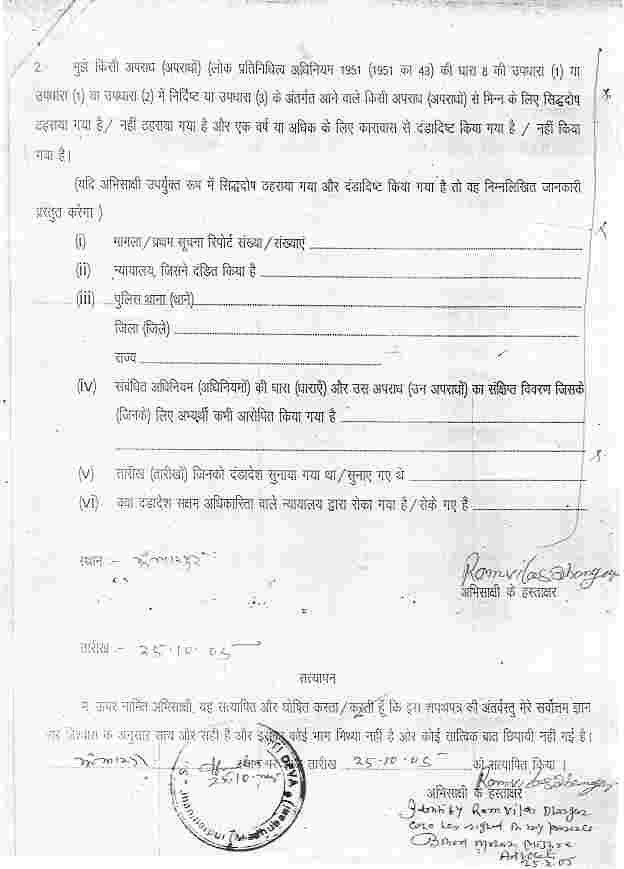 2. मुझे किसी अपराध (अपराधों) (लोक प्रतिनिधित्व अधिनियम 1951 (1951 का 43) की धारा 8 की उपधारा (1) या
उपधारा (1) या उपधारा (2) में निर्दिष्ट या उपधारा (3) के अंतर्गत आने वाले किसी अपराध (अपराधों) से भिन्न के लिए सिद्धदोष
ठहराया गया है / नहीं ठहराया गया है और एक वर्ष या अधिक के लिए कारावास से दंडादिष्ट किया गया है / नहीं किया
गया है।
(यदि अभिसाक्षी उपर्युक्त रूप में सिद्धदोष ठहराया गया और दंडादिष्ट किया गया है तो वह निम्नलिखित जानकारी
प्रस्तुत करेगा )
(i) मामला/प्रथम सूचना रिपोर्ट संख्या/संख्याएं
(ii) न्यायालय, जिसने दंडित किया है
(iii) पुलिस थाना (थाने)
जिला (जिले)
राज्य
(iv) संबंधित अधिनियम (अधिनियमों) की धारा (धाराएँ) और उस अपराध (उन अपराधों) का संक्षिप्त विवरण जिसके
(जिनके) लिए अभ्यर्थी कभी आरोपित किया गया है
(v) तारीख (तारीखों) जिनको दंडादेश सुनाया गया था/सुनाए गए थे
(vi) क्या दंडादेश सक्षम अधिकारिता वाले न्यायालय द्वारा रोका गया है/रोके गए है
स्थान :-
Ramvilas Dhangar
अभिसाक्षी के हस्ताक्षर
तारीख :- 25.10.05
सत्यापन
मैं ऊपर नामित अभिसाक्षी, यह सत्यापित और घोषित करता/करती हूँ कि इस शपथपत्र की अंतर्वस्तु मेरे सर्वोत्तम ज्ञान
और विश्वास के अनुसार सत्य और सही है और इसका कोई भाग मिथ्या नहीं है और कोई तात्विक बात छिपायी नहीं गई है।
स्थान पर तारीख 25.10.05 को सत्यापित किया ।
25.10.05
Ramvilas Dhangar
अभिसाक्षी के हस्ताक्षर
Identify Ramvilas Dhangar
who has signed in my presence
Mohan Mishra
Advocate